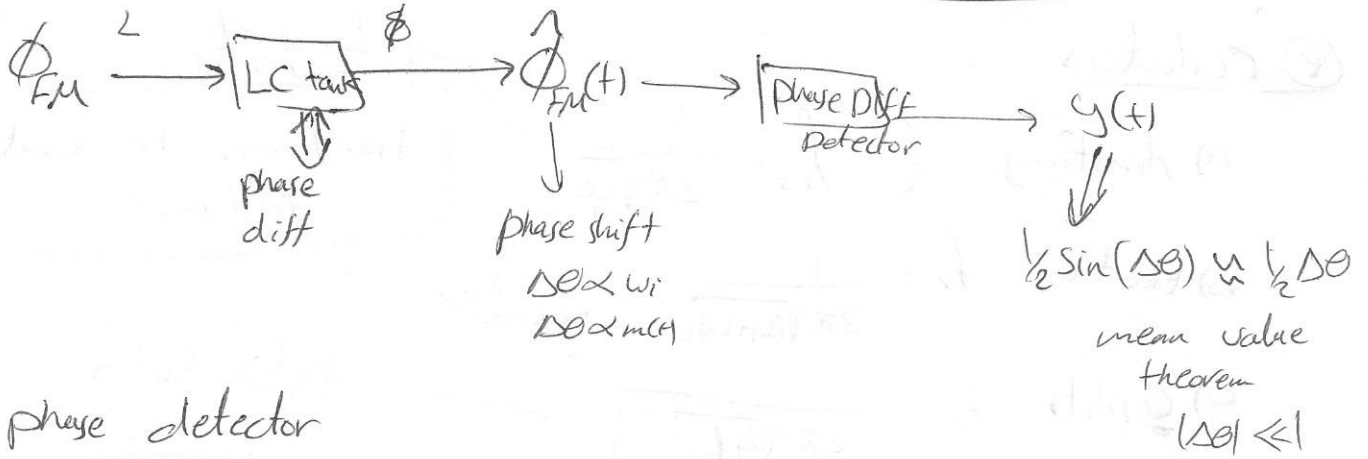 ϕ_FM → LC tank → ϕ̂_FM(t) → phase Diff Detector → y(t)
phase
diff
phase shift
Δθ ∝ ωi
Δθ ∝ m(t)
½ Sin(Δθ) ≈ ½ Δθ
mean value
theorem
|Δθ| ≪ 1
phase detector